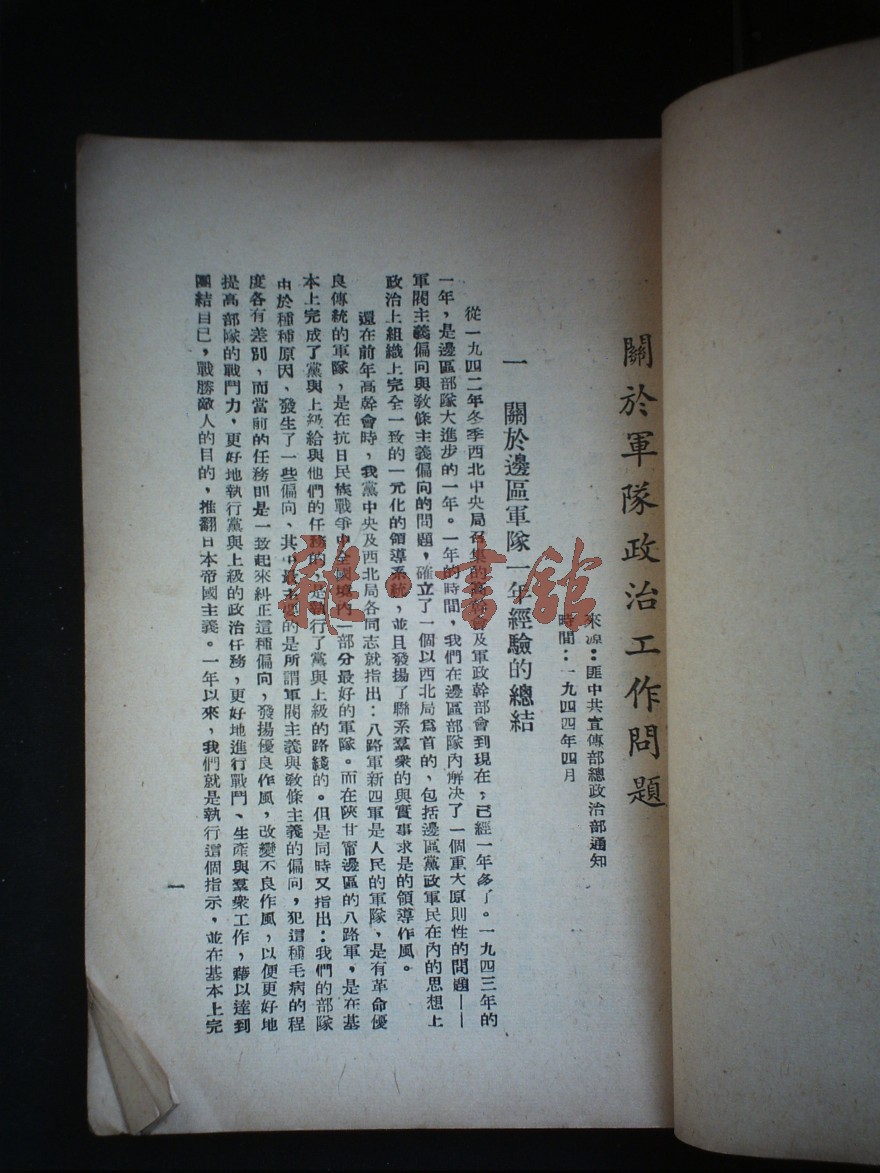 關於軍隊政治工作問題
來源：匪中共宣傳部總政治部通知
時間：一九四四年四月
一 關於邊區軍隊一年經驗的總結
從一九四二年冬季西北中央局召集的高幹會及軍政幹部會到現在，已經一年多了。一九四三年的
一年，是邊區部隊大進步的一年。一年的時間，我們在邊區部隊內解决了一個重大原則性的問題——
軍閥主義偏向與敎條主義偏向的問題，確立了一個以西北局爲首的，包括邊區黨政軍民在內的思想上
政治上組織上完全一致的一元化的領導系統，並且發揚了聯系羣衆的與實事求是的領導作風。
還在前年高幹會時，我黨中央及西北局各同志就指出：八路軍新四軍是人民的軍隊，是有革命優
良傳統的軍隊，是在抗日民族戰爭中全國境內一部分最好的軍隊。而在陝甘甯邊區的八路軍，是在基
本上完成了黨與上級給與他們的任務的，是執行了黨與上級的路綫的。但是同時又指出：我們的部隊
由於種種原因、發生了一些偏向、其中最主要的是所謂軍閥主義與敎條主義的偏向，犯這種毛病的程
度各有差別，而當前的任務則是一致起來糾正這種偏向，發揚優良作風，改變不良作風，以便更好地
提高部隊的戰鬥力，更好地執行黨與上級的政治任務，更好地進行戰鬥、生產與羣衆工作，藉以達到
團結自己，戰勝敵人的目的，推翻日本帝國主義。一年以來，我們就是執行這個指示，並在基本上完
一
雜·書館